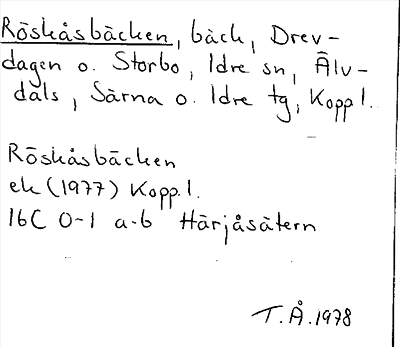 Röskåsbäcken, bäck, Drev-
dagen o. Storbo, Idre sn, Älv-
dals, Särna o. Idre tg, Koppl.
Röskåsbäcken
ek (1977) Koppl.
16C 0-1 a-b Härjåsätern
T.Å. 1978